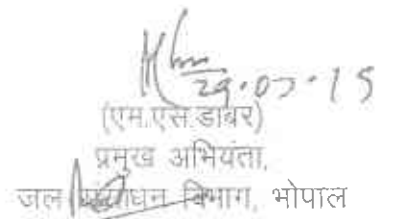 29.07.15
(एम.एस.डाबर)
प्रमुख अभियंता,
जल संसाधन विभाग, भोपाल